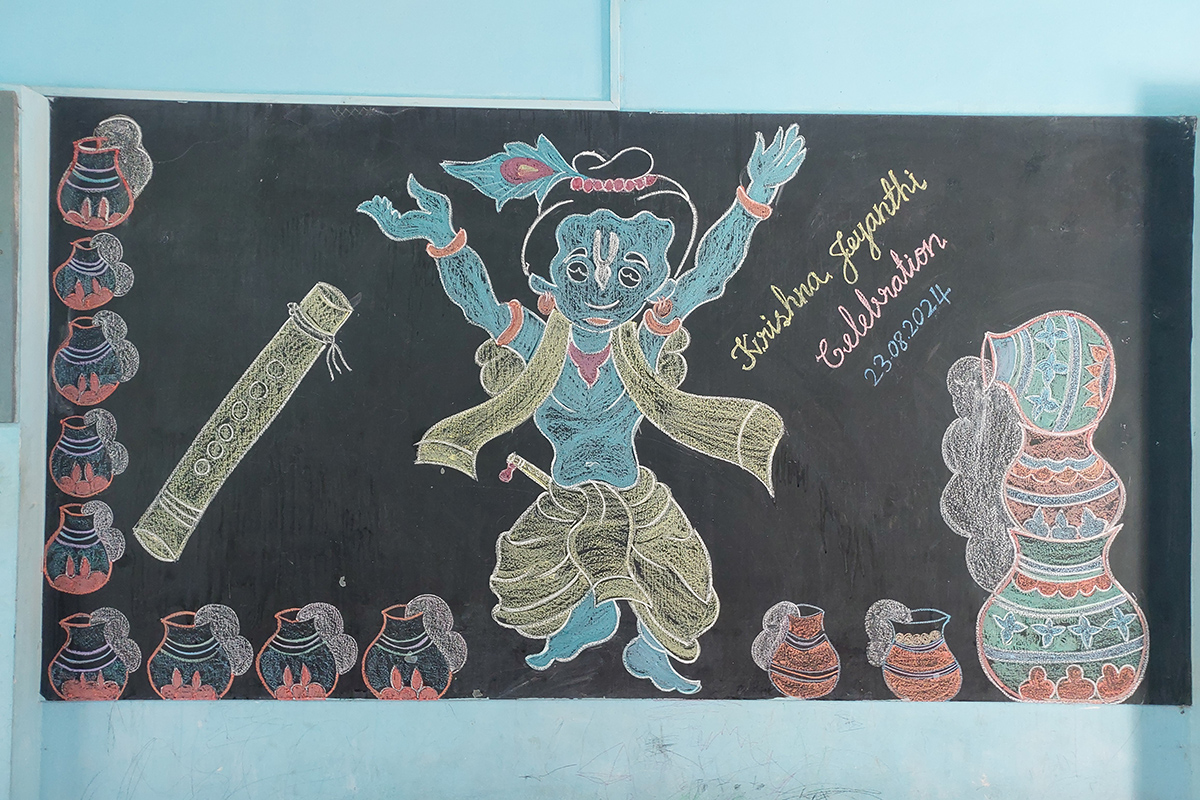 Krishna Jeyanthi
Celebration
23.08.2024